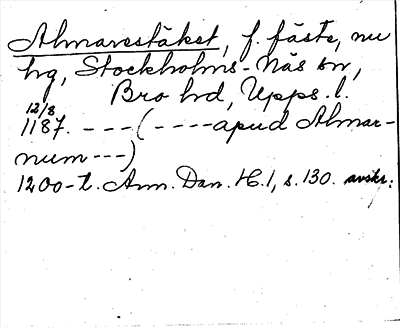 Almarestäket, f. fäste, nu
hg, Stockholms-Näs sn,
Bro hd, Upps. l.
12/8
1187. --- (----apud Almar-
num---)
1200-t. Ann. Dan. H. 1, s. 130. avskr.